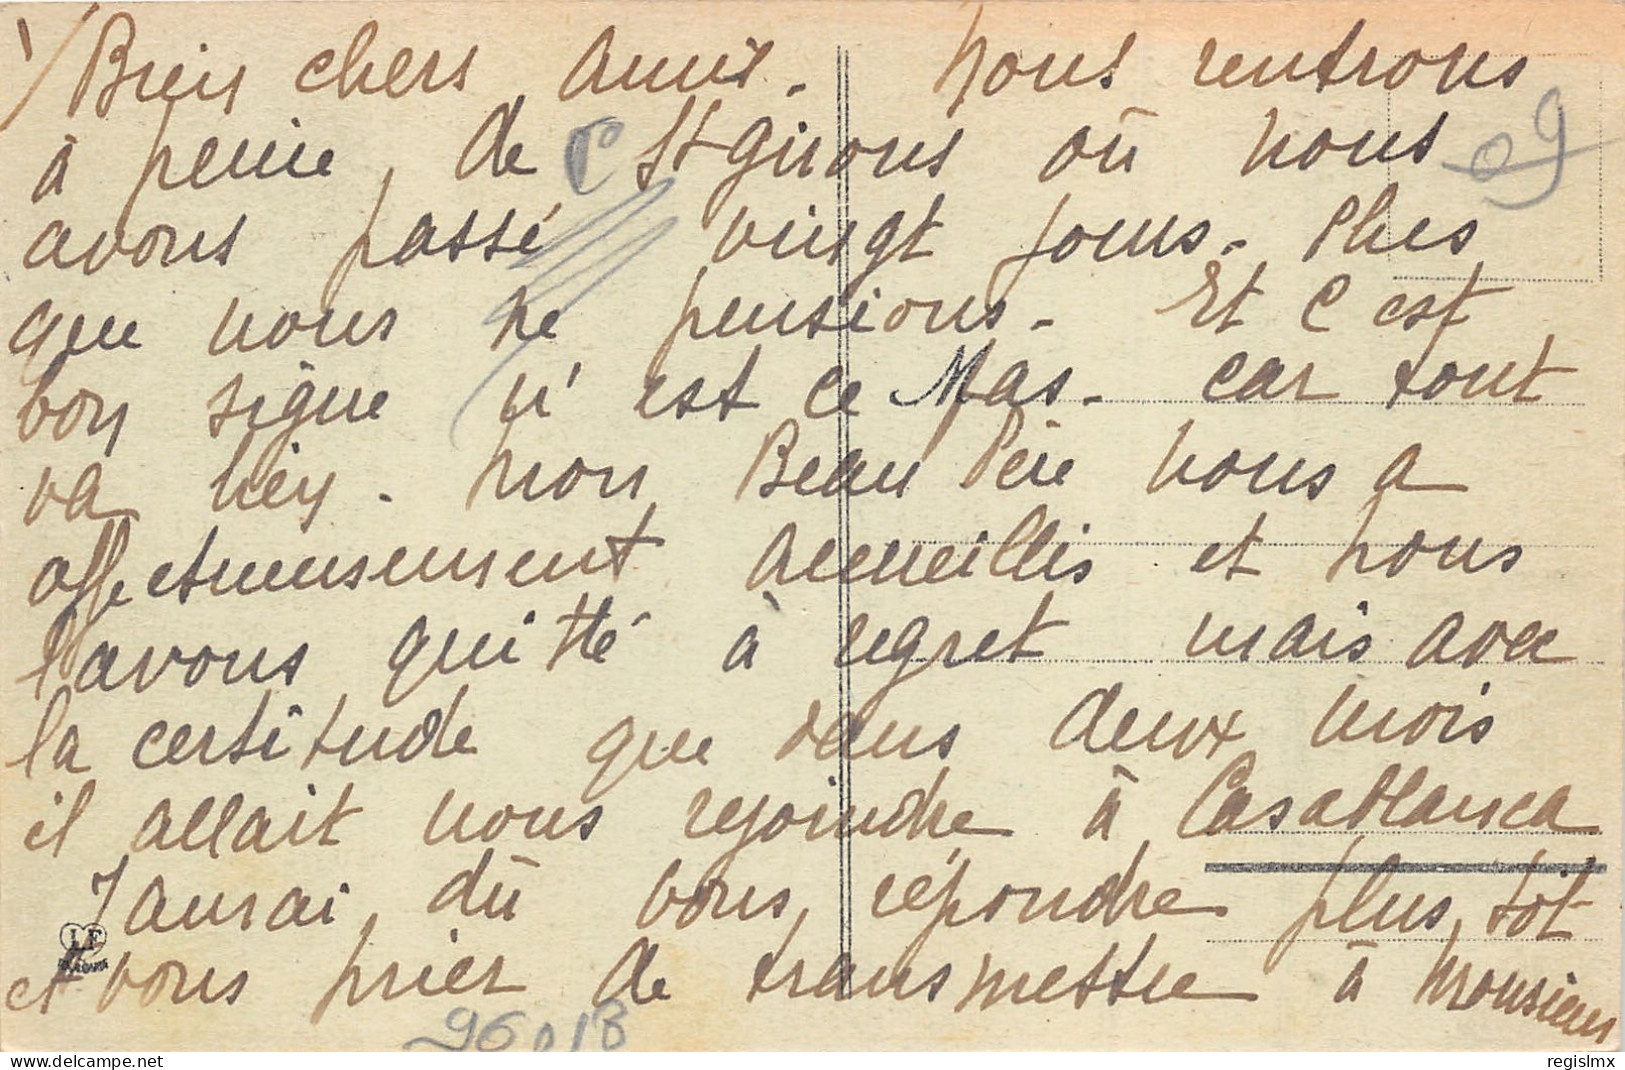 1/ Bien chers amis. Nous rentrons
à peine, de St Girons où nous
avons passé vingt jours. Plus
que nous ne pensions. Et c'est
bon signe n'est ce pas. car tout
va bien. Mon Beau Père nous a
affectueusement accueillis et nous
l'avons quitté à regret mais avec
la certitude que dans deux mois
il allait nous rejoindre à Casablanca
J'aurai dû vous répondre plus tôt
et vous prier de transmettre à Monsieur
09
96018
LF
regislmx